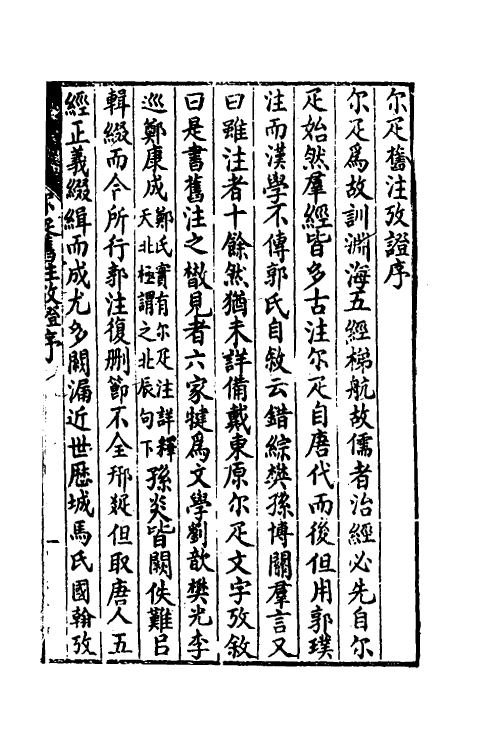 尔疋舊注攷證序
尔疋爲故訓淵海五經梯航故儒者治經必先自尔
疋始然羣經皆多古注尔疋自唐代而後但用郭璞
注而漢學不傳郭氏自敘云錯綜樊孫博關羣言又
曰雖注者十餘然猶未詳備戴東原尔疋文字攷敘
曰是書舊注之㪚見者六家犍爲文學劉歆樊光李
巡鄭康成鄭氏實有尔疋注詳釋天北極謂之北辰句下孫炎皆闕佚難㠯
輯綴而今所行郭注復刪節不全邢䟽但取唐人五
經正義綴緝而成尤多闕漏近世歴城馬氏國翰攷
尔疋舊注攷證序
一